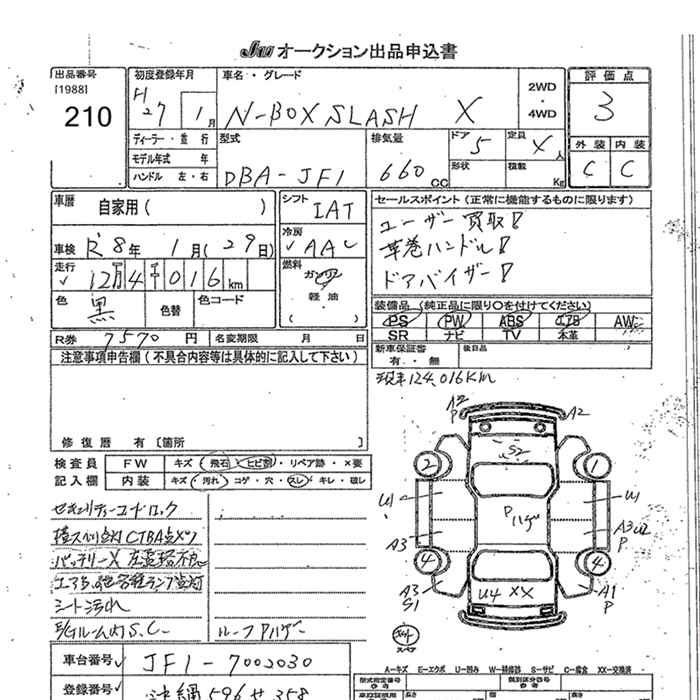 JU オークション出品申込書
出品番号
[1988]
210
初度登録年月
H27 1月
車名・グレード
N-BOX SLASH X
2WD
・
4WD
評価点
3
ディーラー・並行
モデル年式 年
ハンドル 左・右
型式
DBA-JF1
排気量
660 cc
ドア 5
形状
定員 人
積載 Kg
外装 内装
C C
車歴 自家用( )
シフト IAT
セールスポイント (正常に機能するものに限ります)
ユーザー買取!
革巻ハンドル!
ドアバイザー!
車検 R8年 1月(29日)
冷房 AAC
走行 12万4千016km
燃料 ガソリン
軽油
( )
色 黒
色替
色コード
装備品 (純正品に限り○を付けてください)
PS PW ABS エアB AW
SR ナビ TV 本革
R券 7570円
名変期限 月 日
新車保証書
有・無
後日品
注意事項申告欄(不具合内容等は具体的に記入して下さい)
現車124,016Km
修復歴 有〔箇所 〕
検査員
記入欄
FW キズ・飛石・ヒビ割・リペア跡・×要
内装 キズ・汚れ・コゲ・穴・スレ・キレ・破レ
セキュリティーコードロック
シート汚れ
ルームパハゲ
A2
P
A2
S2
2
1
U1
U1
Pハゲ
A3
A3 U2
P
4
4
A3
S1
U4 XX
A1
P
スペア
A-キズ E-エクボ U-凹み W-補修跡 S-サビ C-腐食 XX-交換済
車台番号 JF1-7002030
登録番号 沖縄 596 せ 358
型式指定番号
類別区分番号
長さ